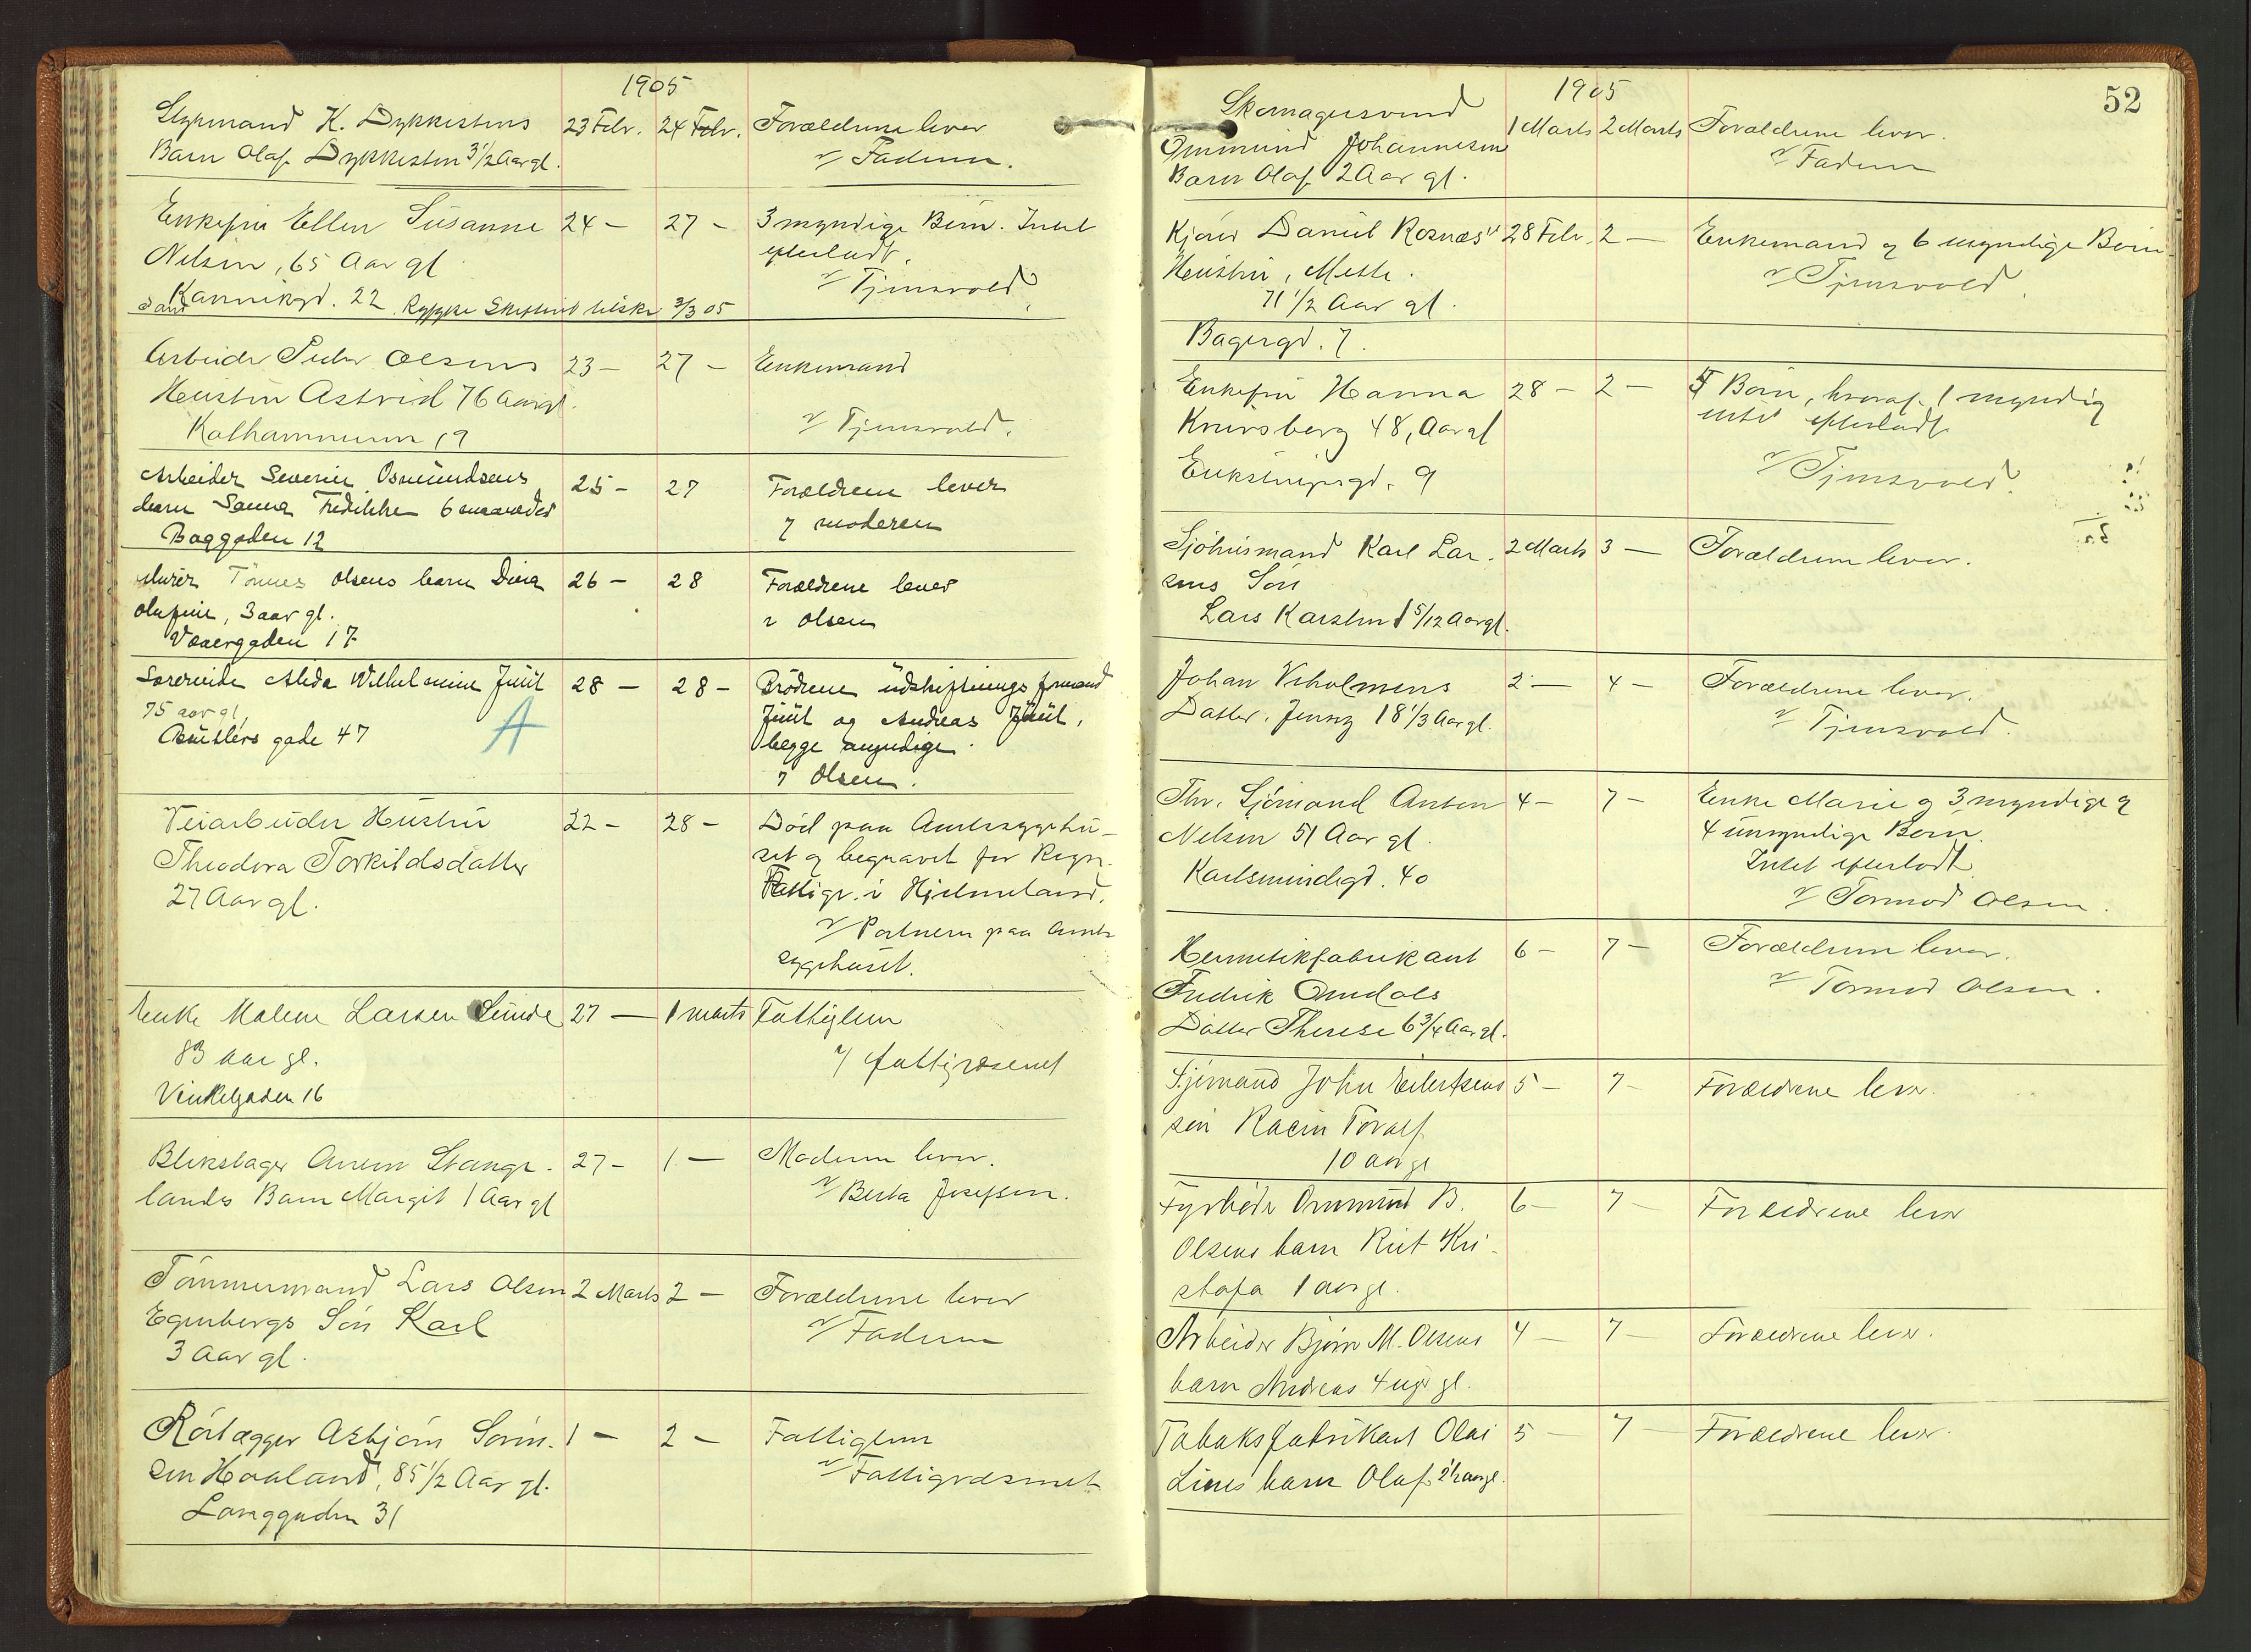 1905
Styrmand K. Dykkestens 23 Febr. 24 Febr. Forældrene lever
Barn Olaf Dykkesten 3 1/2 Aar gl. v/ Faderen.
Enkefru Ellen Susanne 24 — 27 — 3 myndige Börn. Intet
Nilsen, 65 Aar gl efterladt.
Kannikgd. 22 v/ Tjensvold
3/3 05
Arbeider Peder Olsens 23 — 27 — Enkemand
Hustru Astrid 76 Aar gl.
Kalhammeren 19 v/ Tjensvold.
Arbeider Severin Osmundsens 25 — 27 Forældrene lever
barn Sanna Fredrikke 6 maaneder v/ moderen
Baggaden 12
Murer Tönnes Olsens barn Dina 26 — 28 Forældrene lever
Olufine, 3 aar gl. v Olsen
Vævergaden 17
Alida Wilhelmine Juul 28 — 28 — Brödrene udskiftningsformand
75 aar gl. Juul og Andreas Juul,
gade 47 A begge myndige.
v Olsen.
Veiarbeider Hustru 22 — 28 — Död paa Amtssygehu-
Theodora Torkildsdatter set og begravet for Regn.
27 Aar gl. Fattigv. i Hjelmeland.
v/ Portneren paa Amts
sygehuset.
Enke Malene Larsen Lunde 27 — 1 marts Fattiglem
83 aar gl. v/ fattigvæsenet
Vinkelgaden 16
Blikslager Stange- 27 — 1 — Moderen lever.
lands Barn Margit 1 Aar gl v/ Berta Josefsen.
Tömmermand Lars Olsen 2 Marts 2 — Forældrene lever
Egenbergs Sön Karl v/ Faderen
3 Aar gl.
Rörlægger Asbjörn Sören- 1 — 2 — Fattiglem
sen Haaland, 85 1/2 Aar gl. v/ Fattigvæsenet
Langgaden 31
1905
52
Skomagersvend
Ommund Johannesen 1 Marts 2 Marts Forældrene lever.
Barn Olaf 2 Aar gl. v/ Faderen
Daniel Rosnæs' 28 Febr. 2 — Enkemand og 6 myndige Börn
Hustru, Mette. v/ Tjensvold.
71 1/2 Aar gl.
Bagergd. 7.
Enkefru Hanna 28 — 2 — Börn, hvoraf 1 myndig
48, Aar gl intet efterladt
Enkstuegd. 9 v/ Tjensvold.
Sjömand Karl Lar- 2 Marts 3 — Forældrene lever.
sens Sön
Lars Karsten 1 5/12 Aar gl.
Johan Veholmens 2 — 4 — Forældrene lever.
Datter, Jenny 18 1/3 Aar gl. v/ Tjensvold.
Fhv. Sjömand Anton 4 — 7 — Enke Marie og 3 myndige og
Nelson 51 Aar gl. 4 umyndige Börn.
Karlsmindegd. 40 Intet efterladt
v/ Tormod Olsen.
Hermetikfabrikant 6 — 7 — Forældrene lever.
Fredrik Omdals v/ Tormod Olsen.
Datter Therese 6 3/4 Aar gl.
Sjömand John Eilertsens 5 — 7 — Forældrene lever.
sön Toralf
10 aar gl
Fyrböder Ommund B. 6 — 7 — Forældrene lever
Olsens barn Rut Kri-
stofa 1 aar gl.
Arbeider Björn M. Olsens 4 — 7 — Forældrene lever.
barn Andreas 4 uger gl.
Tobaksfabrikant Olai 5 — 7 — Forældrene lever.
Lines barn Olaf 2 1/2 aar gl.